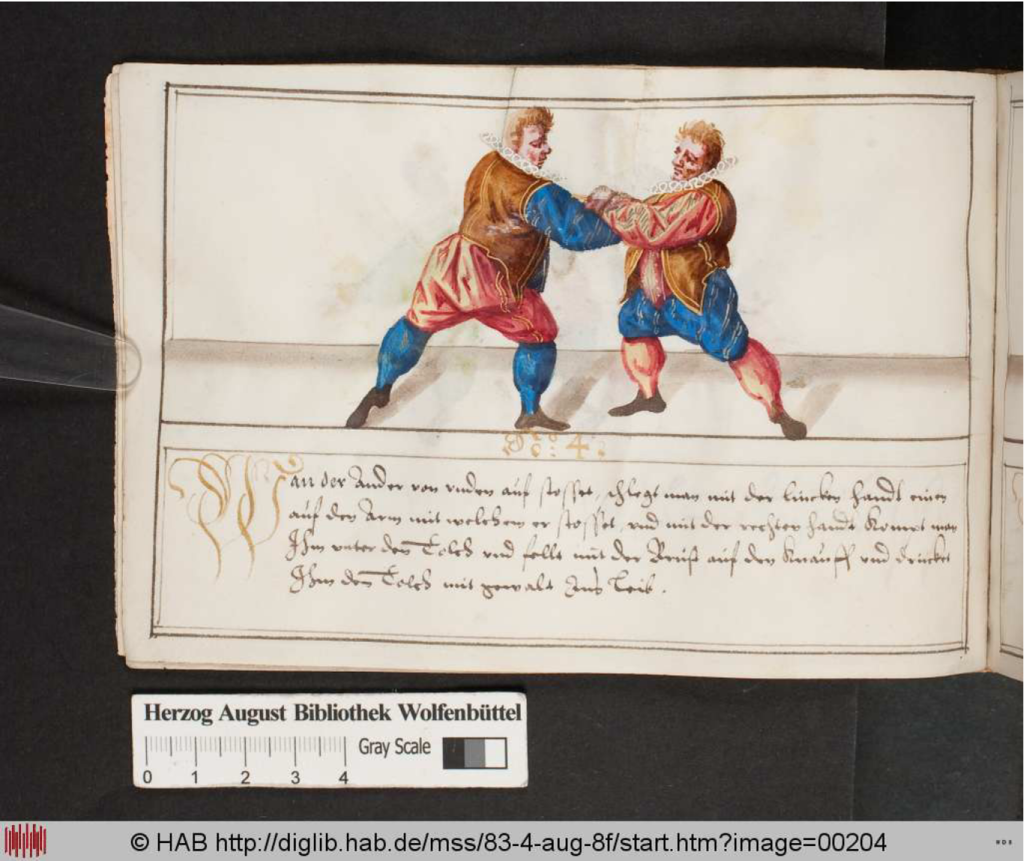 No: 4:
Wan der Ander von vnden auf stosset, schlegt man mit der lincken handt einen
auf den Arm mit welchem er stosset, vnd mit der rechten handt kompt man
Ihm vnter den Tolch vnd felt mit der Brust auf den Knauff vnd drucket
Ihm den Tolch mit gewalt Ins Leib.
Herzog August Bibliothek Wolfenbüttel
Gray Scale
0 1 2 3 4
© HAB http://diglib.hab.de/mss/83-4-aug-8f/start.htm?image=00204